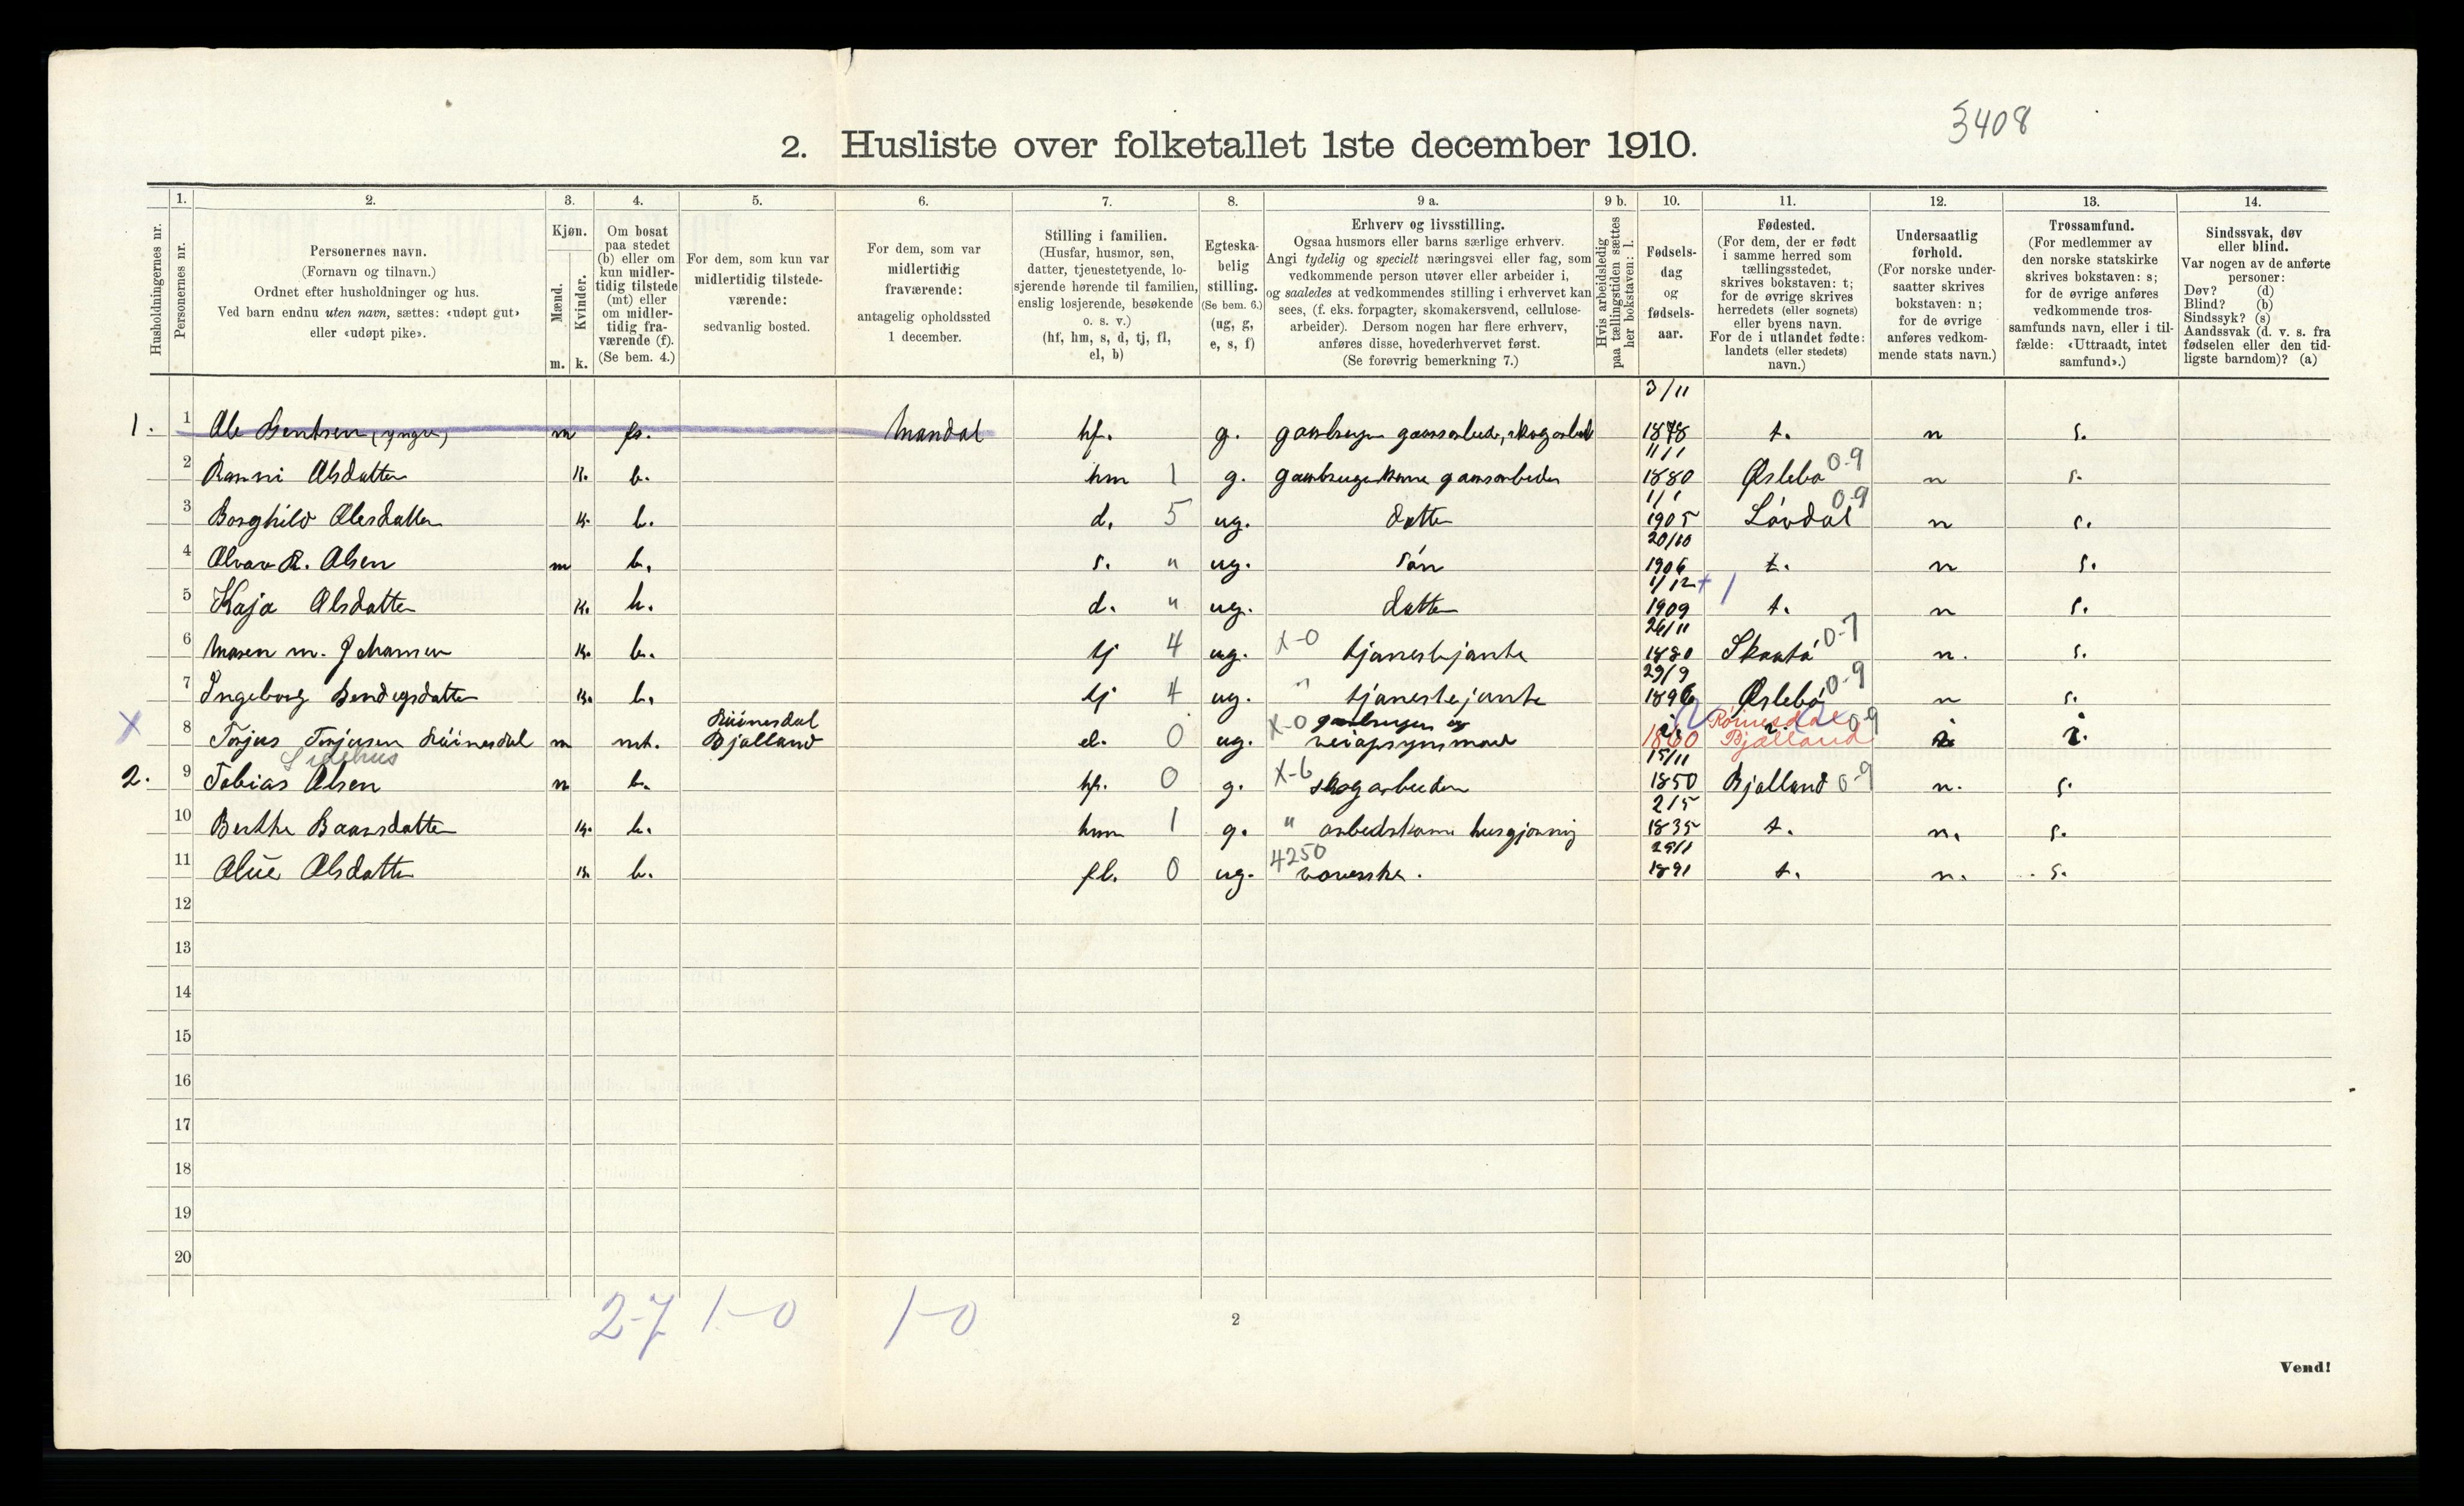 3408
2. Husliste over folketallet 1ste december 1910.
Husholdningernes nr.
1.
Personernes nr.
2.
Personernes navn.
(Fornavn og tilnavn.)
Ordnet efter husholdninger og hus.
Ved barn endnu uten navn, sættes: «udøpt gut»
eller «udøpt pike».
3.
Kjøn.
Mænd.
Kvinder.
m. k.
4.
Om bosat
paa stedet
(b) eller om
kun midler-
tidig tilstede
(mt) eller
om midler-
tidig fra-
værende (f).
(Se bem. 4.)
5.
For dem, som kun var
midlertidig tilstede-
værende:
sedvanlig bosted.
6.
For dem, som var
midlertidig
fraværende:
antagelig opholdssted
1 december.
7.
Stilling i familien.
(Husfar, husmor, søn,
datter, tjenestetyende, lo-
sjerende hørende til familien,
enslig losjerende, besøkende
o. s. v.)
(hf, hm, s, d, tj, fl,
el, b)
8.
Egteska-
belig
stilling.
(Se bem. 6.)
(ug, g,
e, s, f)
9 a.
Erhverv og livsstilling.
Ogsaa husmors eller barns særlige erhverv.
Angi tydelig og specielt næringsvei eller fag, som
vedkommende person utøver eller arbeider i,
og saaledes at vedkommendes stilling i erhvervet kan
sees, (f. eks. forpagter, skomakersvend, cellulose-
arbeider). Dersom nogen har flere erhverv,
anføres disse, hovederhvervet først.
(Se forøvrig bemerkning 7.)
9 b.
Hvis arbeidsledig
paa tællingstiden sættes
her bokstaven: l.
10.
Fødsels-
dag
og
fødsels-
aar.
11.
Fødested.
(For dem, der er født
i samme herred som
tællingsstedet,
skrives bokstaven: t;
for de øvrige skrives
herredets (eller sognets)
eller byens navn.
For de i utlandet fødte:
landets (eller stedets)
navn.)
12.
Undersaatlig
forhold.
(For norske under-
saatter skrives
bokstaven: n;
for de øvrige
anføres vedkom-
mende stats navn.)
13.
Trossamfund.
(For medlemmer av
den norske statskirke
skrives bokstaven: s;
for de øvrige anføres
vedkommende tros-
samfunds navn, eller i til-
fælde: «Uttraadt, intet
samfund».)
14.
Sindssvak, døv
eller blind.
Var nogen av de anførte
personer:
Døv? (d)
Blind? (b)
Sindssyk? (s)
Aandssvak (d. v. s. fra
fødselen eller den tid-
ligste barndom)? (a)
1. 1 Ole Bentsen (yngre) m Mandal hf. g. 3/11 1878 t. n s.
2 Ranni Olsdatter k. b. hm 1 g. 11/1 1880 Øslebø 0-9 n s.
3 Borghild Olesdatter k. b. d. 5 ug. datter 1/1 1905 Løvdal 0-9 n s.
4 R. Olsen m b. s. " ug. søn 20/10 1906 t. n s.
5 Kaja Olsdatter k. b. d. " ug. datter 1/12 1909 t. n s.
6 Maren m. Johansen k. b. tj 4 ug. X-0 tjenestejente 26/11 1880 Skaatø 0-7 n. s.
7 Ingeborg k. b. tj 4 ug. " tjenestejente 29/9 1896 Øslebø 0-9 n s.
X 8 Torjus Torjusen m mt. Bjelland el. 0 ug. X-0 gaardbruger og veiopsynsmand 1860 Bjelland 0-9
Sidehus
2. 9 Tobias Olsen m b. hf. 0 g. X-6 skogarbeider 15/11 1850 Bjelland 0-9 n. s.
10 Berthe Baarsdatter k. b. hm 1 g. " arbeidskone husgjerning 2/5 1835 t. n. s.
11 Olsdatter k b. fl. 0 ug. 4250 væverske. 29/1 1891 t. n. s.
12
13
14
15
16
17
18
19
20
2-7 1-0 1-0
2
Vend!